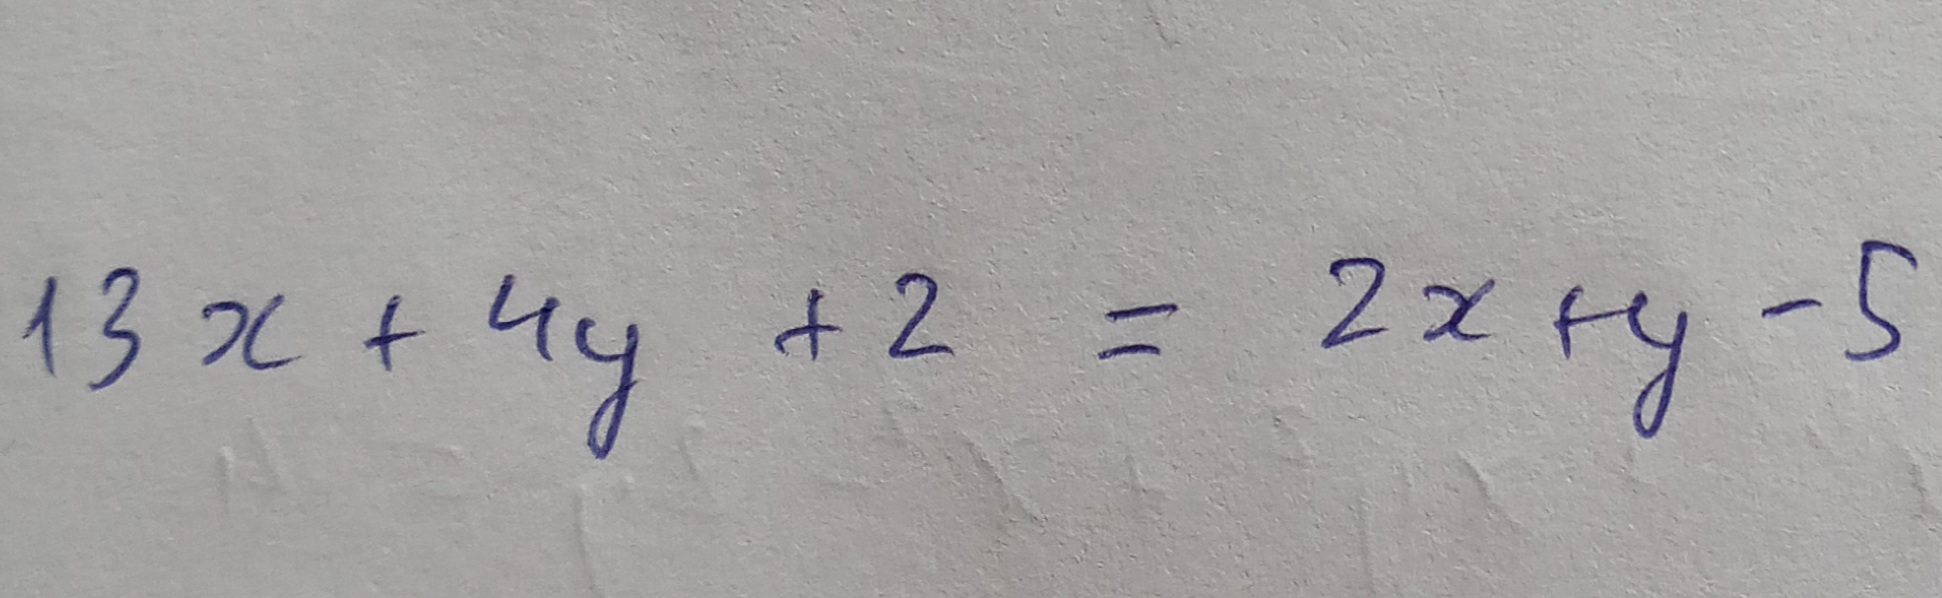 13x + 4y + 2 = 2x + y - 5